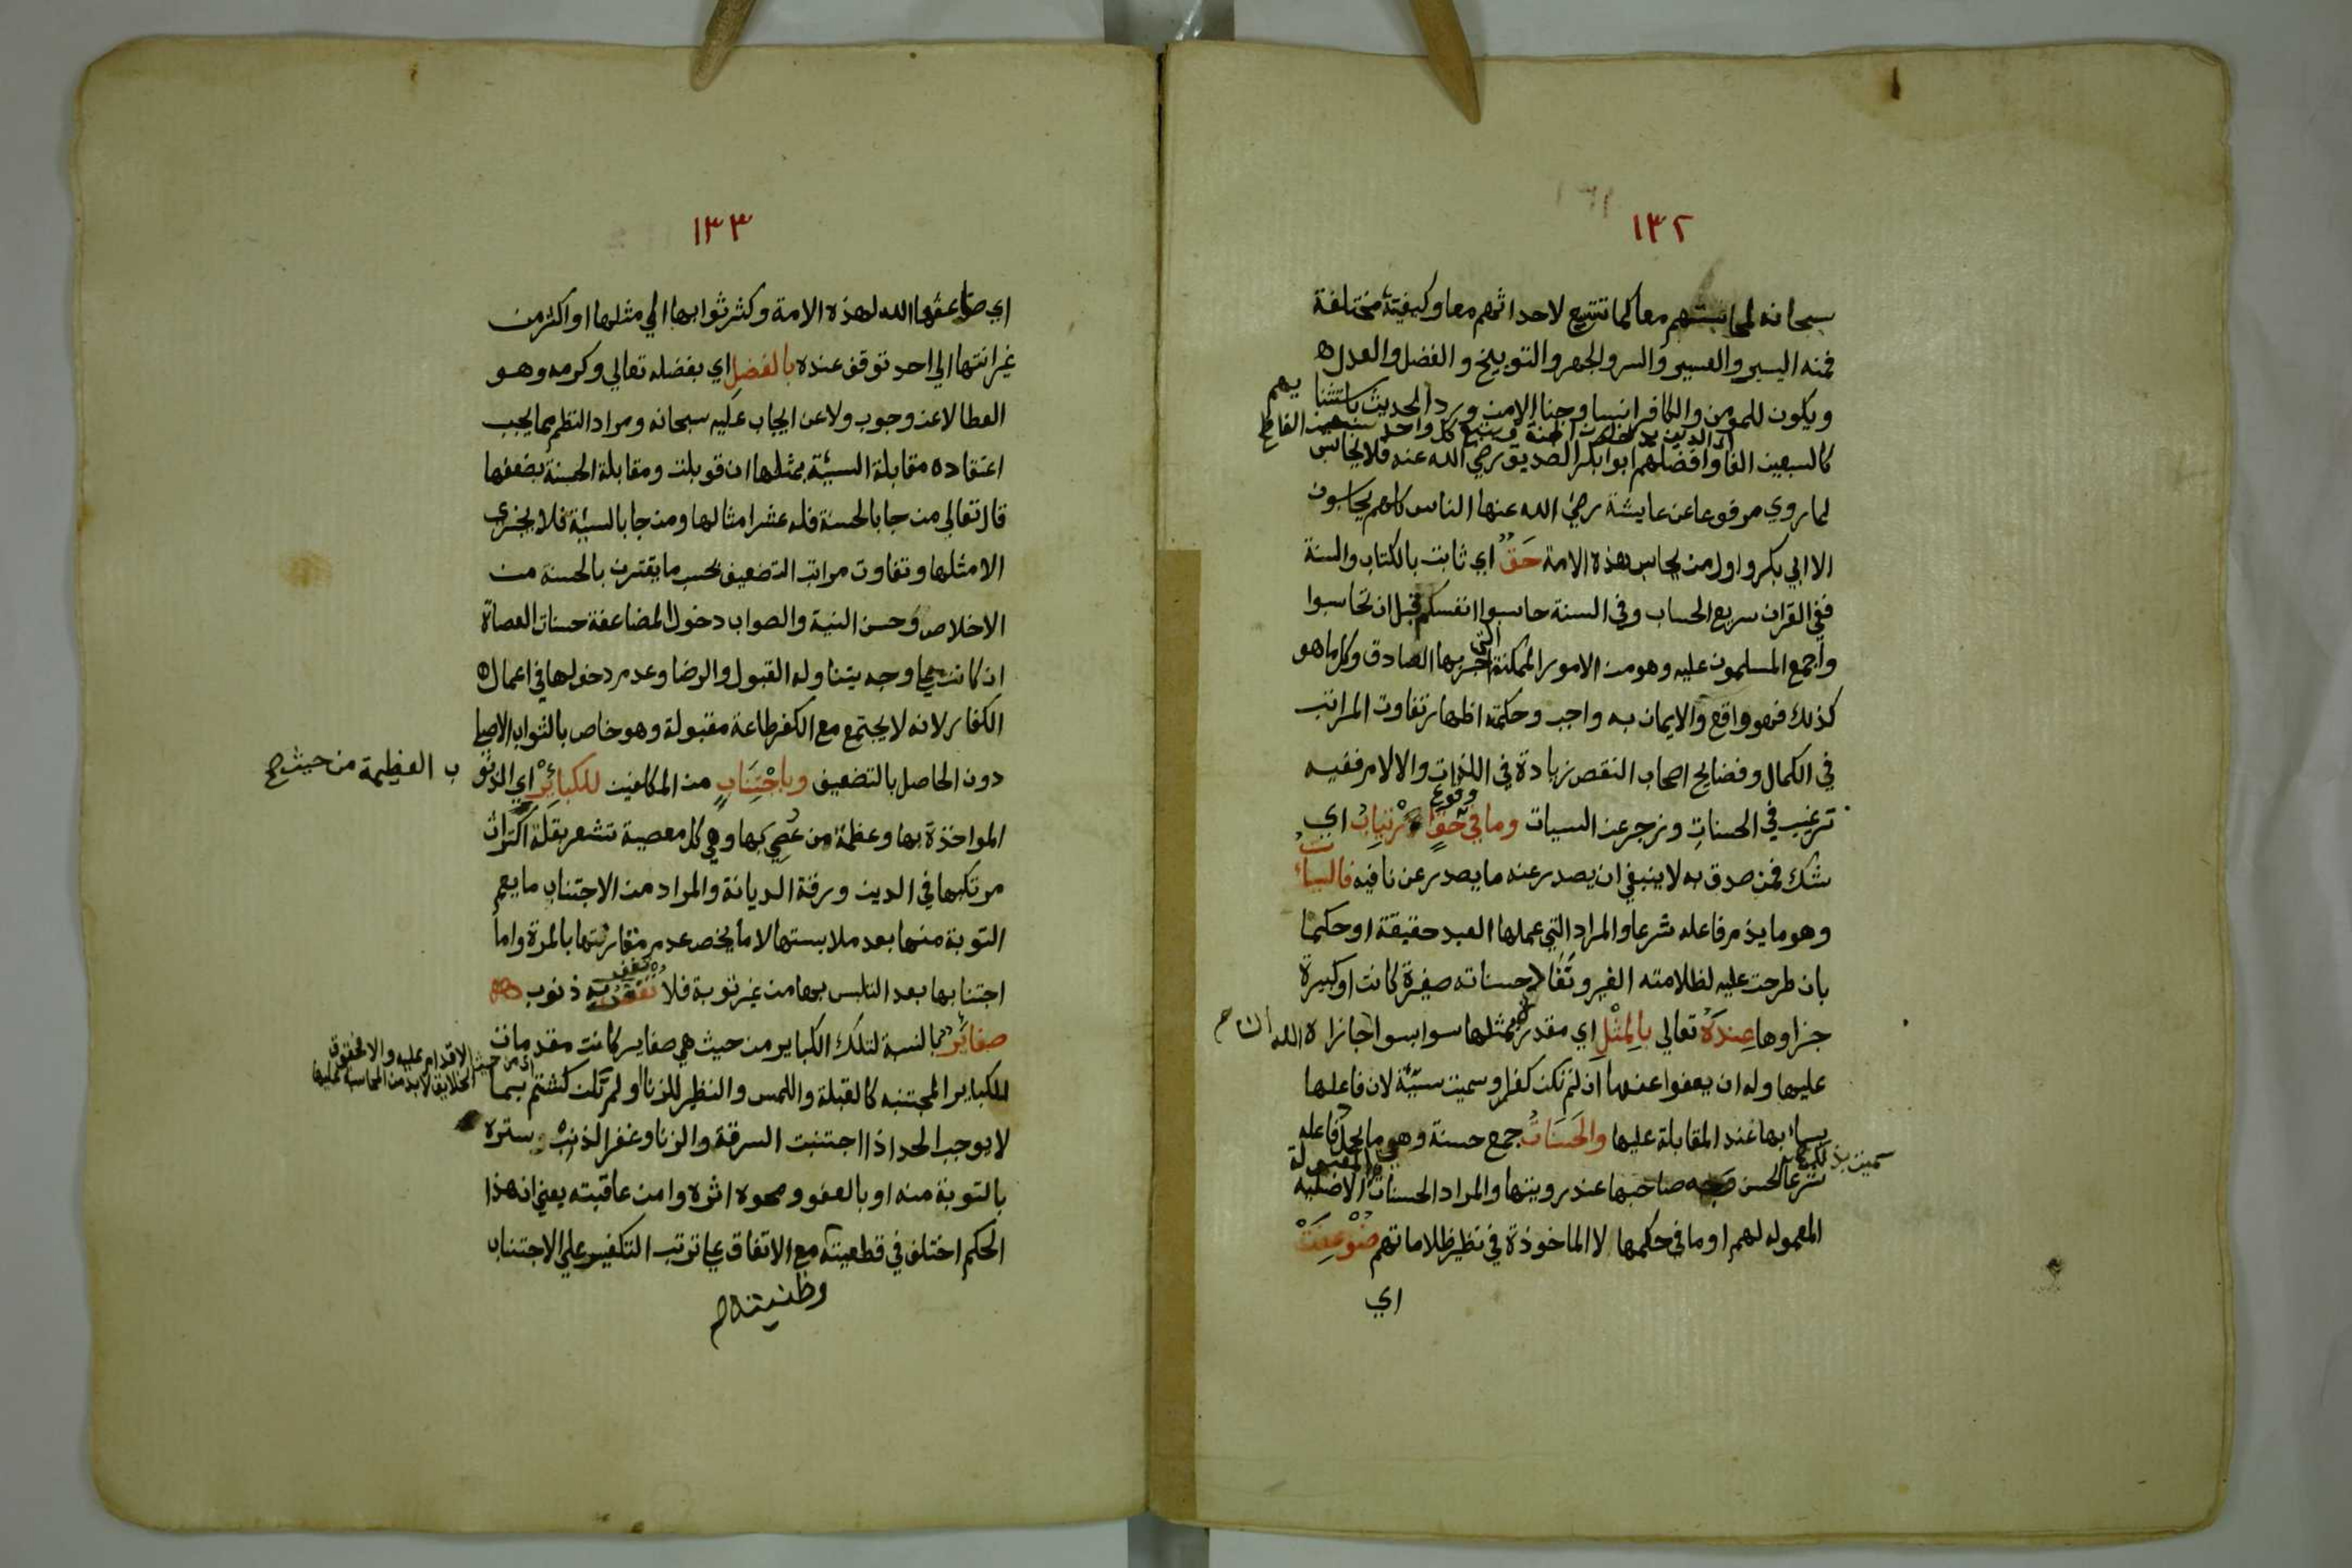 ١٣٢
سبحانه لمحاسبتهم معا كما تتسع لاحداثهم معا وكيفيته مختلفة
فمنه اليسير والعسير والسر والجهر والتوبيخ والفضل والعدل
ويكون للمومن والكافر انسا وجنا الا من ورد الحديث باستثنايهم
الذين يدخلون الجنة كل واحد
كالسبعين الفا وافضلهم ابوا بكر الصديق رضي الله عنه فلا يحاسب
لما روي مرفوعا عن عايشة رضي الله عنها الناس كلهم يحاسبون
الا ابي بكر واول من يحاسب هذه الامة حَقٌّ اي ثابت بالكتاب والسنة
ففي القران سريع الحساب وفي السنة حاسبوا انفسكم قبل ان تحاسبوا
واجمع المسلمون عليه وهو من الامور الممكنة التي اخبر بها الصادق وكل ما هو
كذلك فهو واقع والايمان به واجب وحكمته اظهار تفاوت المراتب
في الكمال وفضايح اصحاب النقص زيادة في اللذات والالام ففيه
ترغيب في الحسنات وزجر عن السيات وما في وقوع حَقٍّ ارْتِيابُ اي
شك فمن صدق به لا ينبغي ان يصدر عنه ما يصدر عن نافيه فالسيأت
وهو ما يذم فاعله شرعا والمراد التي عملها العبد حقيقة او حكما
بان طرحت عليه لظلامته الغير ونفاد حسناته صغيرة كانت او كبيرة
جزاوها عِندَهُ تعالى بالمِثْلِ اي مقدر بمثلها سوا بسوا جازاه الله
عليها وله ان يعفوا عنها ان لم تكن كفرا وسميت سيّئة لان فاعلها
يساء بها عند المقابلة عليها والحَسَنَاتُ جمع حسنة وهي ما يحمد فاعله
سميت بذلك
شرعا لحسن وجه صاحبها عند رويتها والمراد الحسنات المقبولة الاصلية
المعموله لهم او ما في حكمها لا الماخوذة في نظير ظلاماتهم ضُوْعِفَتْ
اي
١٣٣
اي ضاعفها الله لهذه الامة وكثر ثوابها الى مثلها او اكثر من
غير انتها الى احد توقف عنده بالفضلِ اي بفضله تعالى وكرمه وهو
العطا لا عن وجوب ولا عن ايجاب عليه سبحانه ومراد النظم مما يجب
اعتقاده مقابلة السيئة بمثلها ان قوبلت ومقابلة الحسنة بضعفها
قال تعالى من جا بالحسنة فله عشر امثالها ومن جا بالسيئة فلا يجزى
الا مثلها وتفاوت مراتب التضعيف بحسب ما يقترن بالحسنة من
الاخلاص وحسن النية والصواب دخول المضاعفة حسنات العصاة
ان كانت على وجه يتناوله القبول والرضا وعدم دخولها في اعمال
الكفار لانه لا يجتمع مع الكفر طاعة مقبولة وهو خاص بالثواب الاصلي
دون الحاصل بالتضعيف وباجْتِنَابٍ من المكلفين للكبائِرْ اي الذنوب العظيمة من حيث
المواخذة بها وعظمة من عُصِي بها وهي كل معصية تشعر بقلة اكتراث
مرتكبها في الدين ورقة الديانة والمراد من الاجتناب ما يعم
التوبة منها بعد ملابستها لا ما يخص عدم مقارنتها بالمرة واما
اجتنابها بعد التلبس بها من غير توبة فلا تُغْفَرُ به ذنوب
صغايَرٌ بالنسبة لتلك الكباير من حيث هي صغاير كانت مقدمات
اي من حيث الاقدام عليه والا فحقوق الخلايق لا بد من المحاسبة عليها
للكباير المجتنبه كالقبلة واللمس والنظر للزنا او لم تكن كشتم بما
لا يوجب الحد اذا اجتنبت السرقة والزنا وغفر الذنب ستره
بالتوبة منه او بالعفو ومحوه اثره وامن عاقبته يعني ان هذا
الحكم اختلف في قطعيته مع الاتفاق على ترتب التكفير على الاجتناب
وظنيته